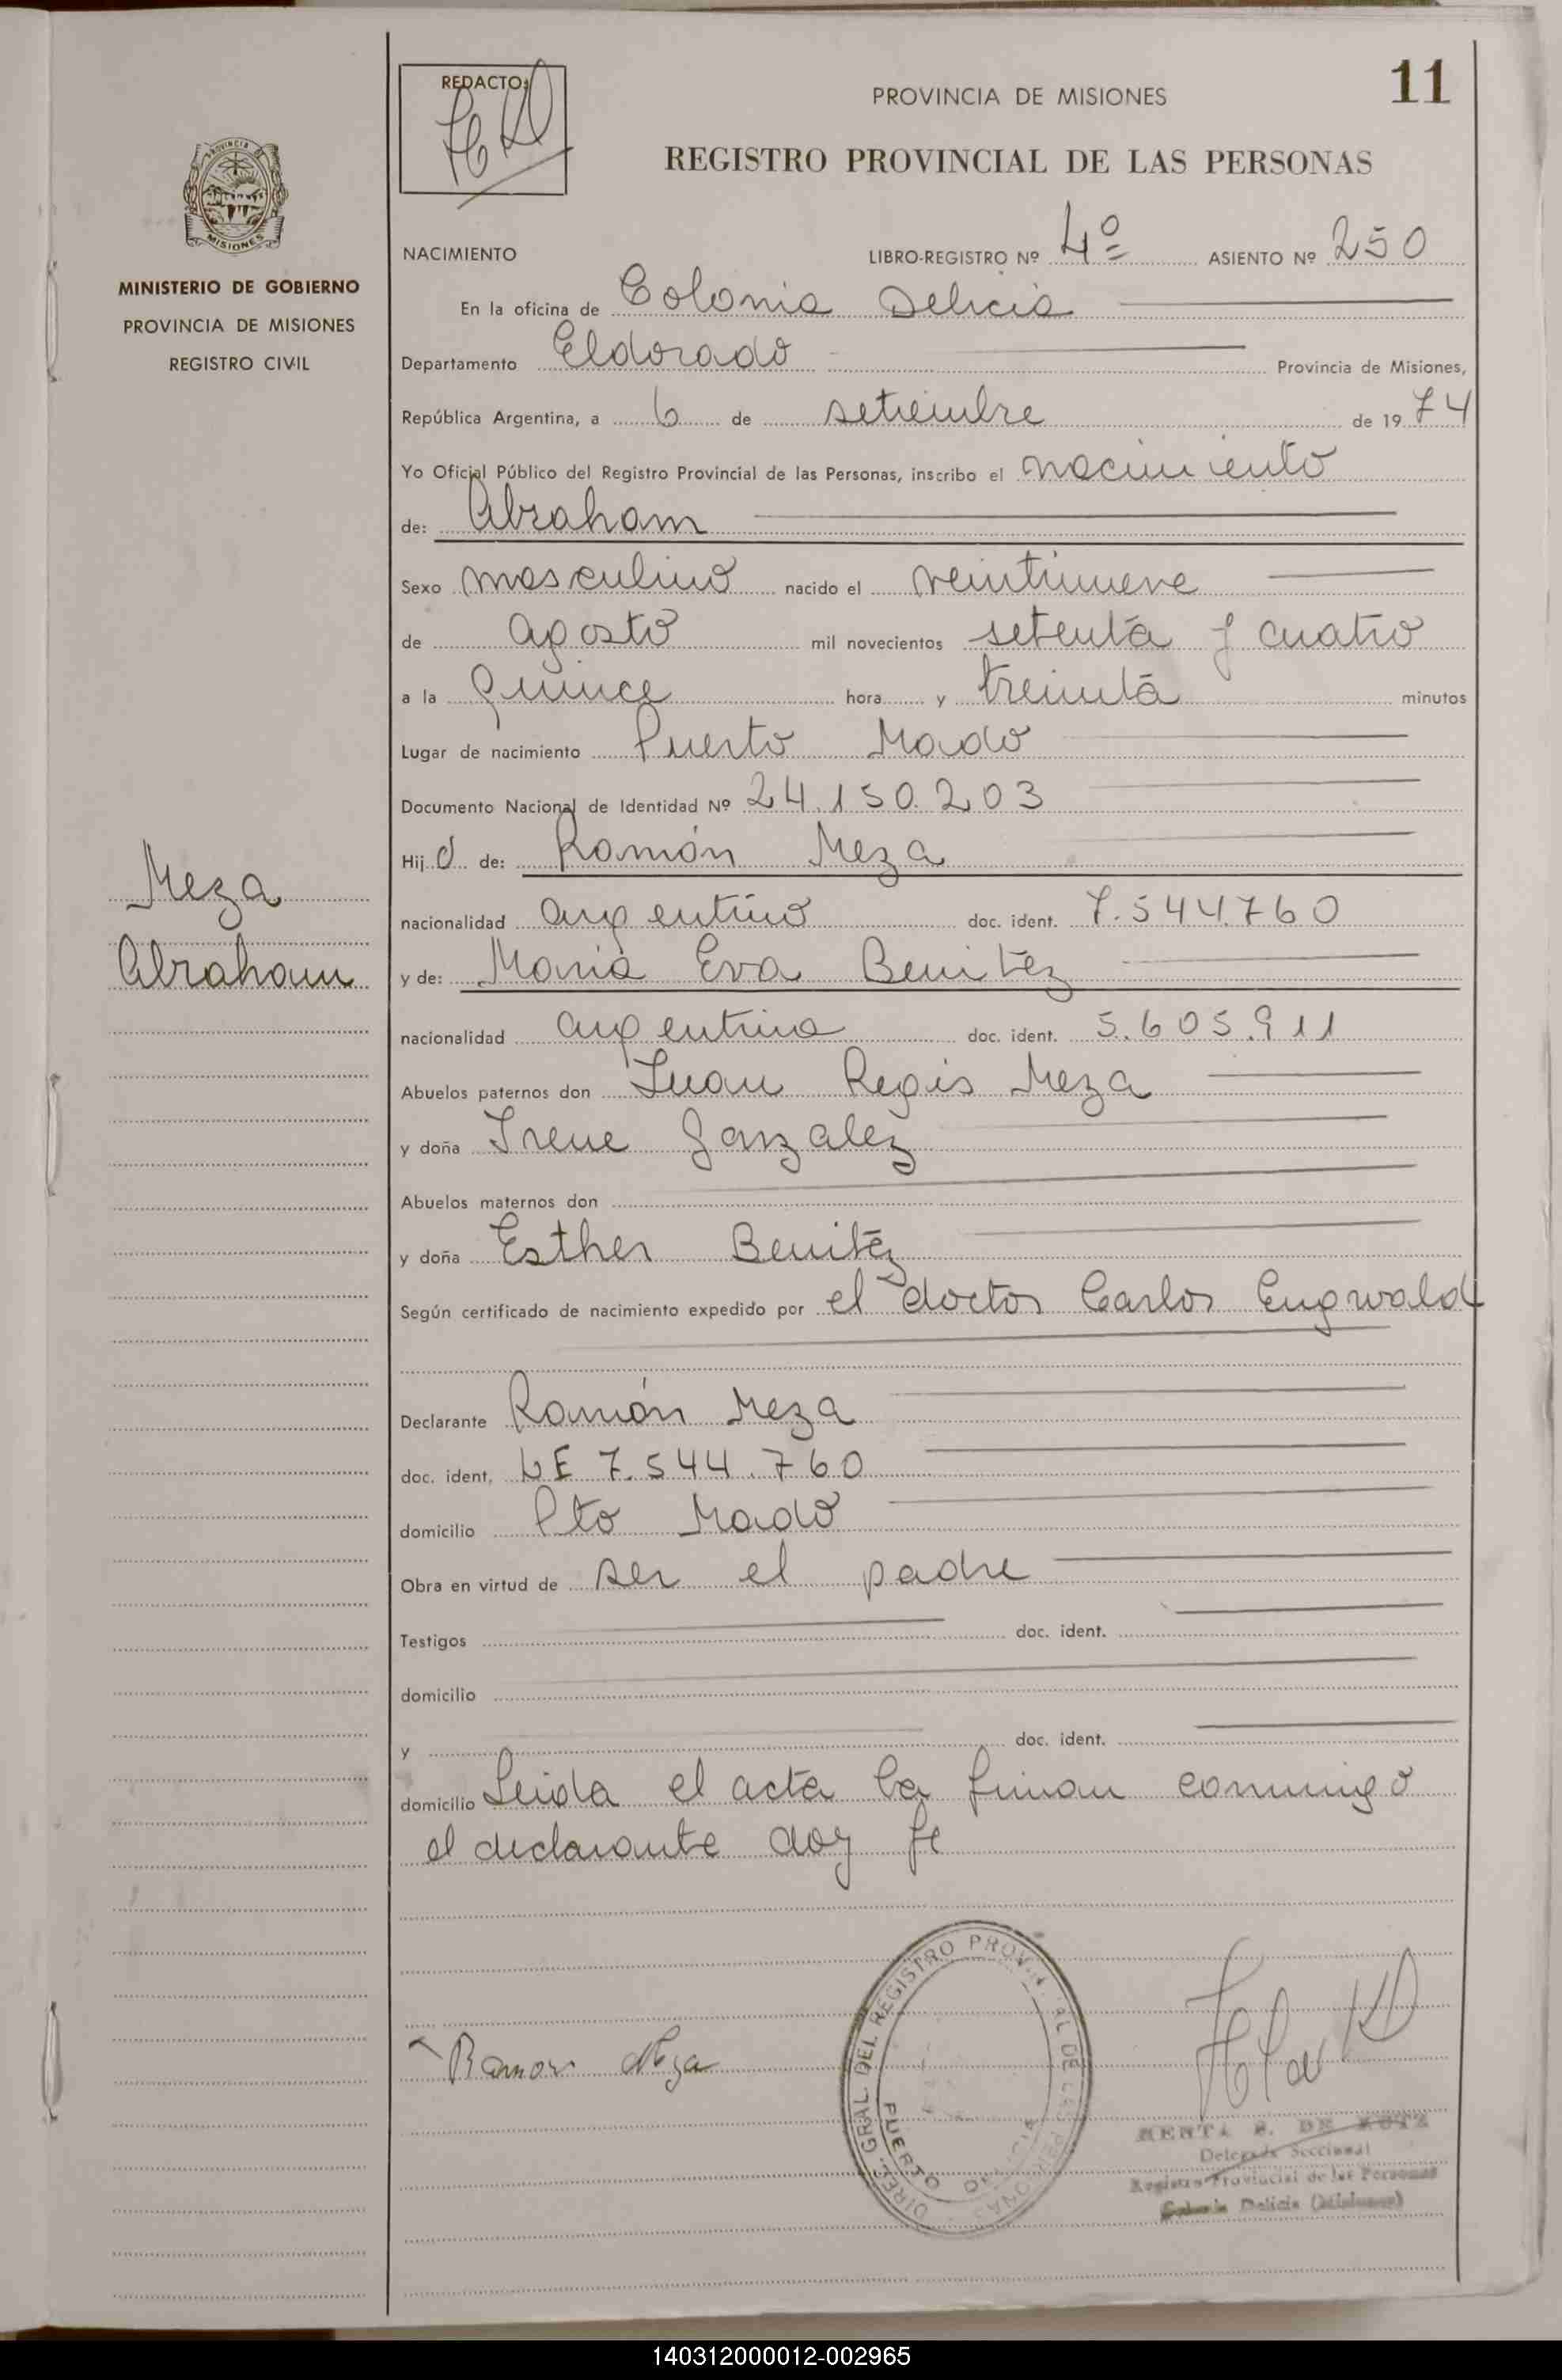 REDACTO:
PROVINCIA DE MISIONES
11
REGISTRO PROVINCIAL DE LAS PERSONAS
PROVINCIA DE
MISIONES
MINISTERIO DE GOBIERNO
PROVINCIA DE MISIONES
REGISTRO CIVIL
NACIMIENTO LIBRO-REGISTRO Nº 4º ASIENTO Nº 250
En la oficina de Colonia Delicia
Departamento Eldorado Provincia de Misiones,
República Argentina, a 6 de setiembre de 1974
Yo Oficial Público del Registro Provincial de las Personas, inscribo el nacimiento
de: Abraham
Sexo masculino nacido el veintinueve
de agosto mil novecientos setenta y cuatro
a la quince hora y treinta minutos
Lugar de nacimiento Puerto Mado
Documento Nacional de Identidad Nº 24.150.203
Hijo de: Ramón Meza
Meza
Abraham
nacionalidad argentino doc. ident. 7.544.760
y de: María Eva Benitez
nacionalidad argentina doc. ident. 5.605.911
Abuelos paternos don Juan Regis Meza
y doña Irene Gonzalez
Abuelos maternos don
y doña Esther Benitez
Según certificado de nacimiento expedido por el doctor Carlos Engwald
Declarante Ramón Meza
doc. ident. LE 7.544.760
domicilio Pto Mado
Obra en virtud de ser el padre
Testigos doc. ident.
domicilio
y doc. ident.
domicilio Leida el acta la firman conmigo
el declarante doy fe
Ramon Meza
DIREC. GRAL. DEL REGISTRO PROV. AL DE LAS PERSONAS
PUERTO DELICIA
Delegada Seccional
Registro Provincial de las Personas
Colonia Delicia (Misiones)
140312000012-002965